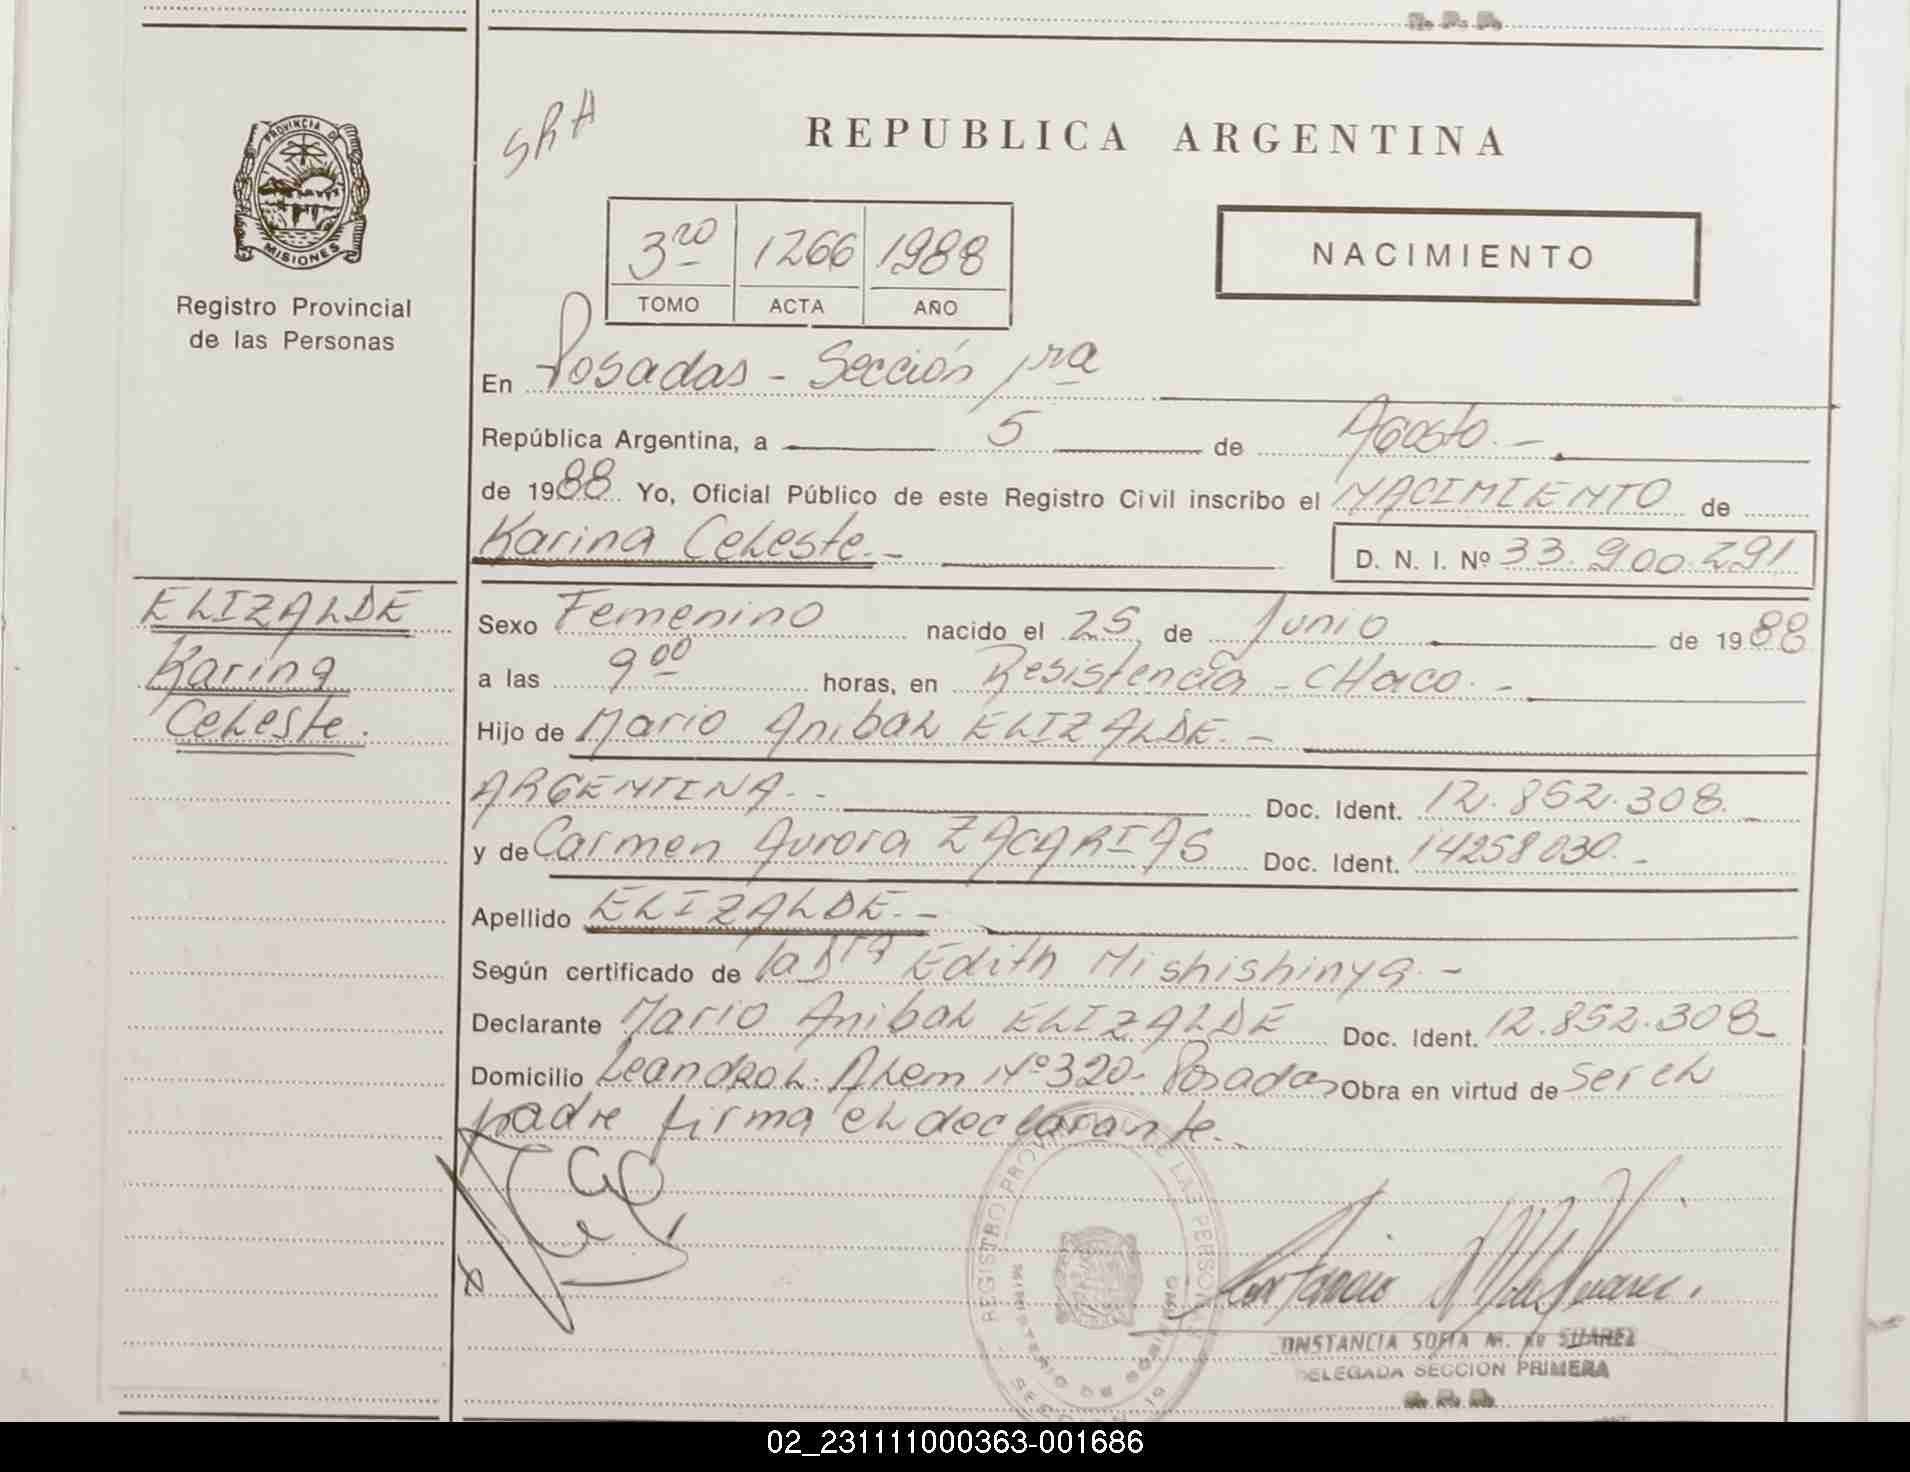 R. P. P.
SRA
REPUBLICA ARGENTINA
PROVINCIA DE
MISIONES
Registro Provincial
de las Personas
3ro 1266 1988
TOMO ACTA AÑO
NACIMIENTO
En Posadas - Sección 1ra
República Argentina, a 5 de Agosto.-
de 1988 Yo, Oficial Público de este Registro Civil inscribo el NACIMIENTO de
Karina Celeste.-
D. N. I. Nº 33.900.291
ELIZALDE
Karina
Celeste.
Sexo Femenino nacido el 25 de Junio de 1988
a las 9 00 horas, en Resistencia - CHaco.-
Hijo de Mario Anibal ELIZALDE.-
ARGENTINA.- Doc. Ident. 12.852.308.-
y de Carmen Aurora ZACARIAS Doc. Ident. 14258030.-
Apellido ELIZALDE.-
Según certificado de la Dra Edith Mishishinya.-
Declarante Mario Anibal ELIZALDE Doc. Ident. 12.852.308-
Domicilio Leandro L. Alem Nº 320- Posadas Obra en virtud de ser el
padre firma el declarante.-
REGISTRO PROVINCIAL DE LAS PERSONAS
MINISTERIO DE GOBIERNO
SECCION 1ª
CONSTANCIA SOFIA M. de SUAREZ
DELEGADA SECCION PRIMERA
R. P. P.
02_231111000363-001686